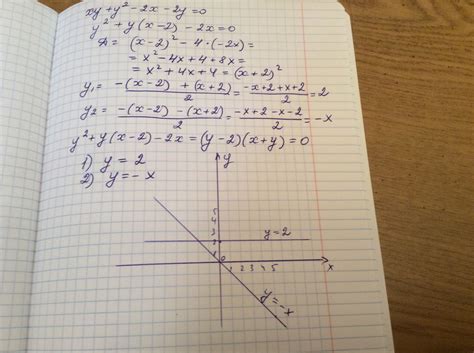 xy + y² - 2x - 2y = 0
y² + y(x-2) - 2x = 0
D = (x-2)² - 4·(-2x) =
= x² - 4x + 4 + 8x =
= x² + 4x + 4 = (x+2)²
y₁ = (-(x-2) + (x+2))/2 = (-x+2+x+2)/2 = 2
y₂ = (-(x-2) - (x+2))/2 = (-x+2-x-2)/2 = -x
y² + y(x-2) - 2x = (y-2)(x+y) = 0
1) y = 2
2) y = -x
y
5
4
3
2
1
y = 2
0 1 2 3 4 5 x
y = -x